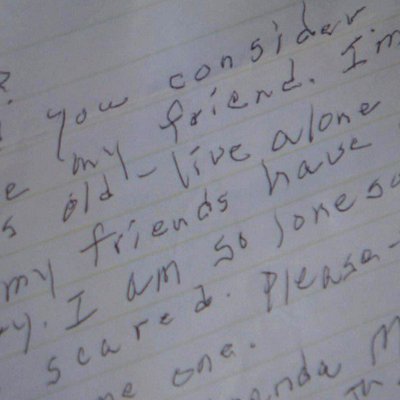 ?
you consider
e my friend. I'm
s old - live alone
my friends have
ry. I am so loneso
scared. Please -
me one.
anda M